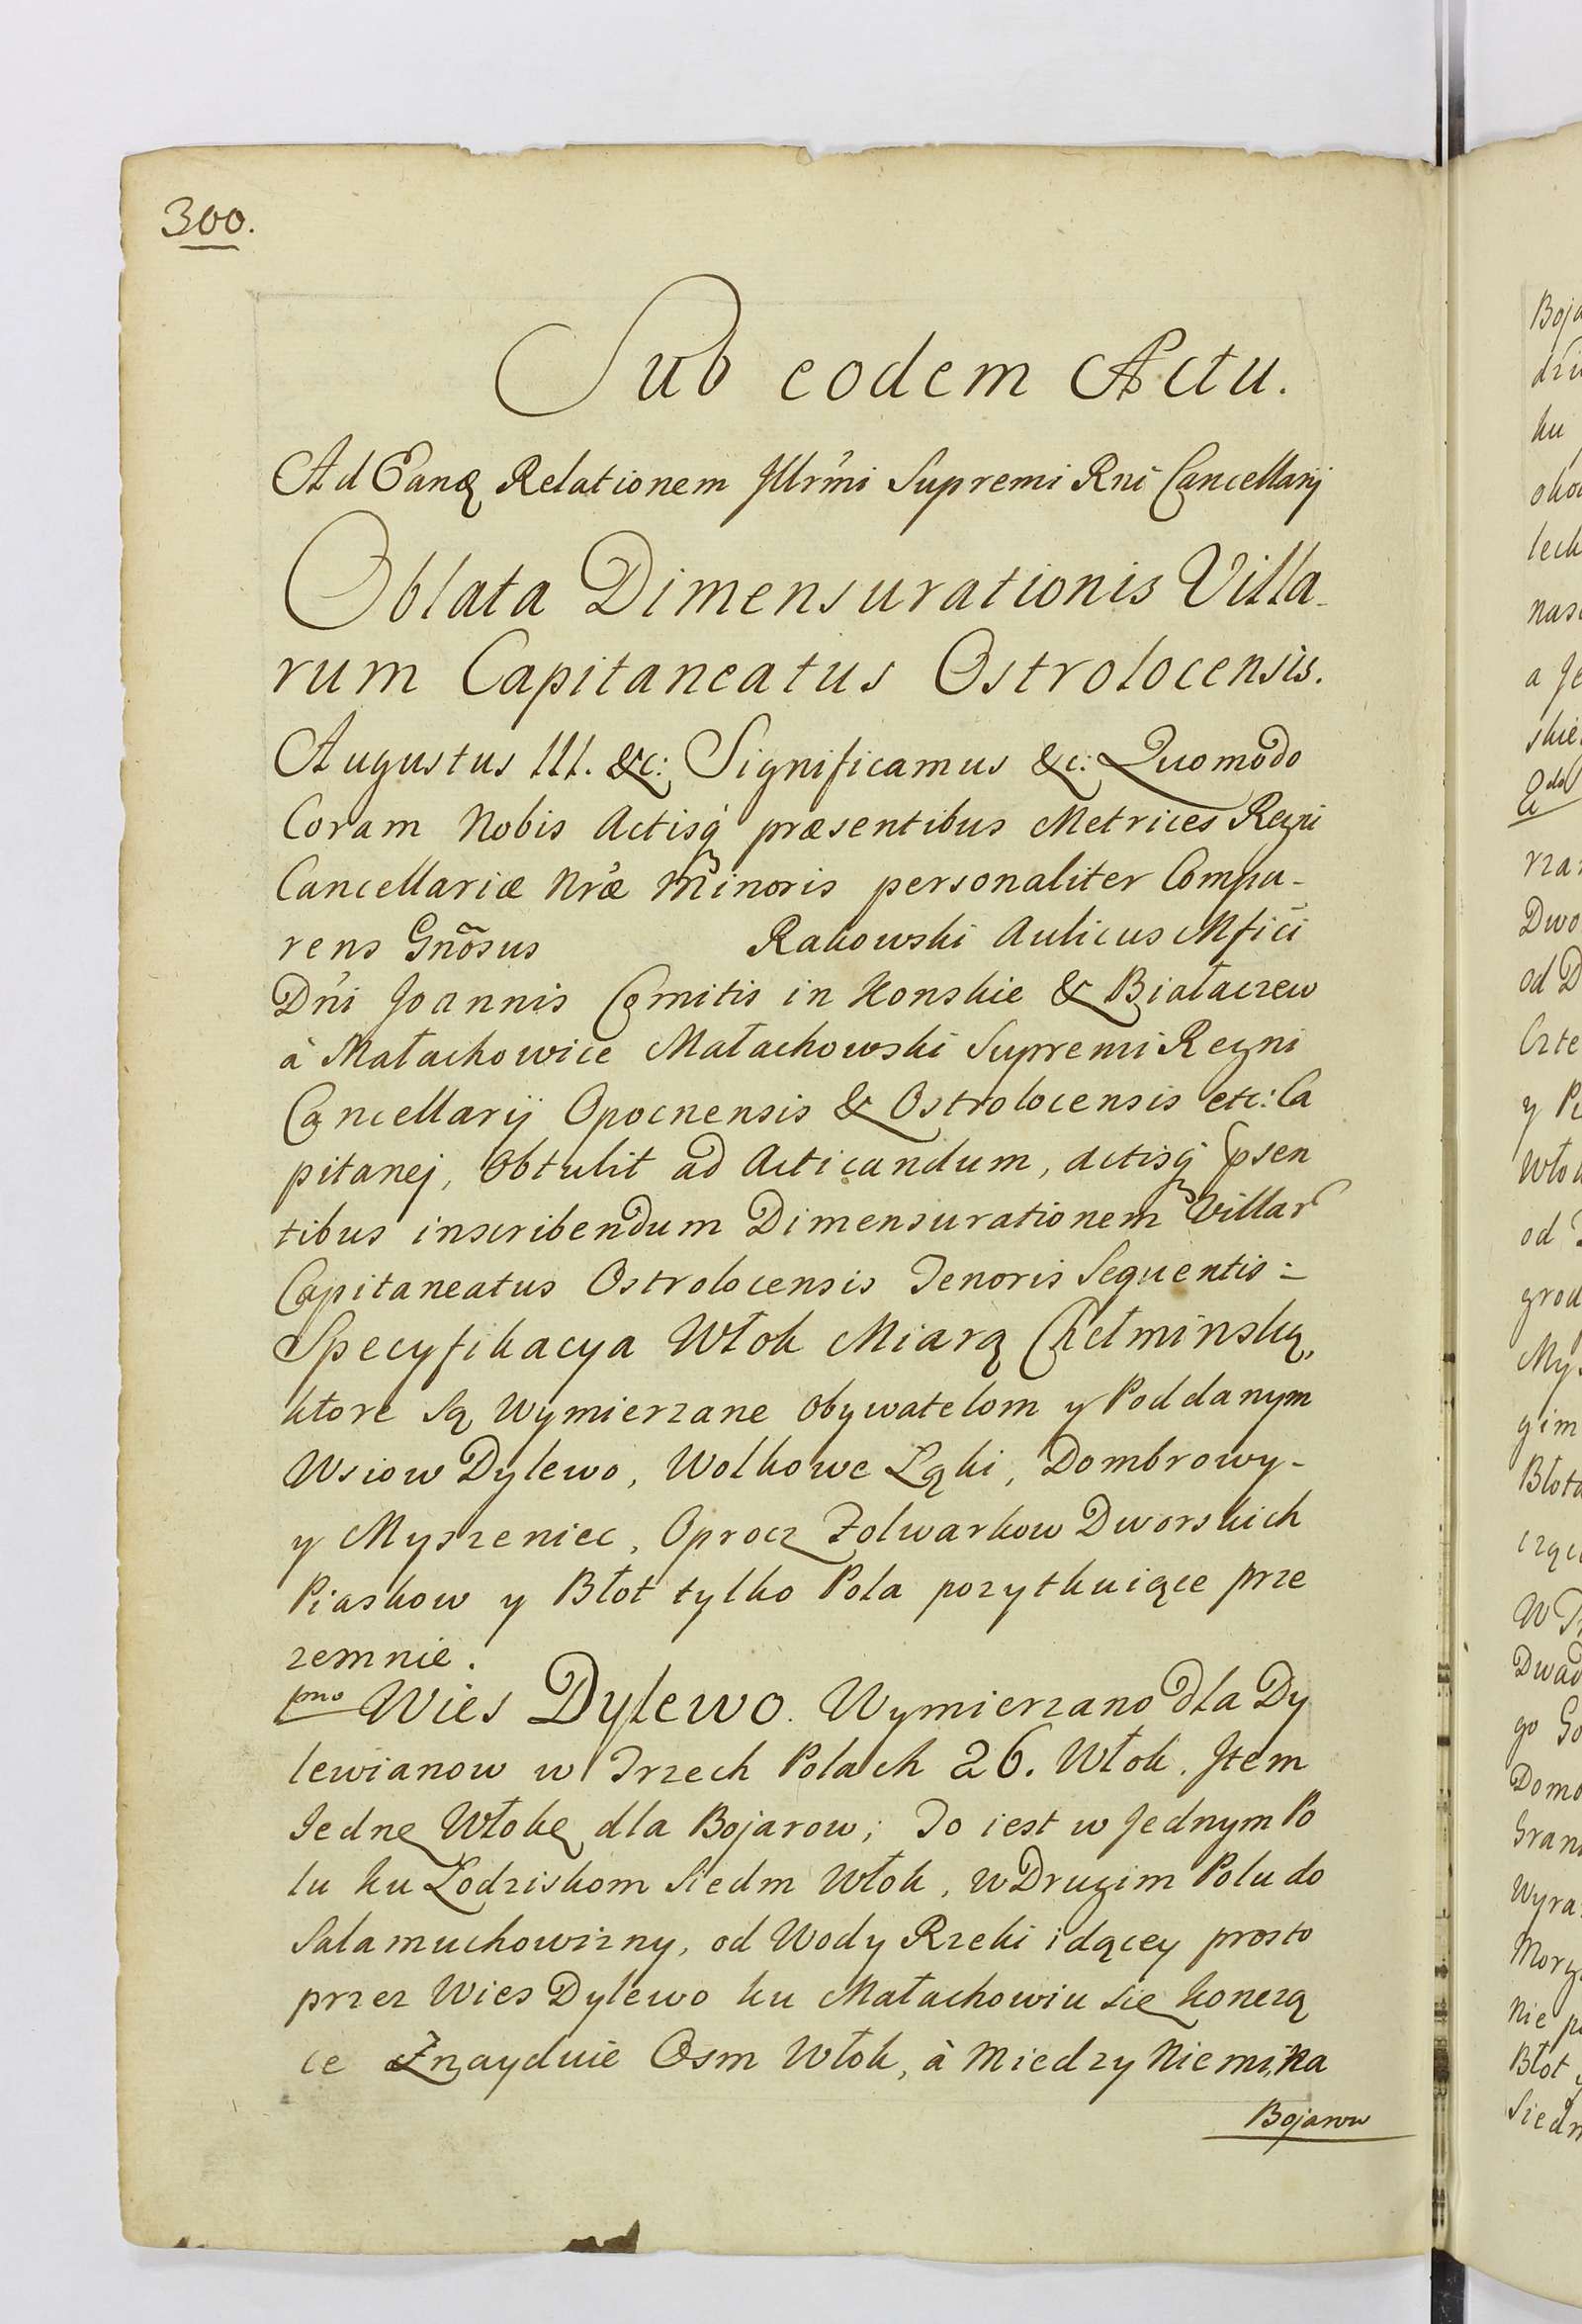 300.
Sub eodem Actu.
Ad Eanq Relationem Jllrm̃i Supremi Rni Cancellarij
Oblata Dimensurationis Villa-
rum Capitaneatus Ostrolocensis.
Augustus III. &c: Significamus &c: Quomodo
Coram Nobis Actisq́ præsentibus Metrices Regni
Cancellariæ Nr̃æ Minoris personaliter Compa-
rens Gnõsus Rakowski Aulicus Mfici
Dñi Joannis Comitis in Konskie & Białaczew
à Małachowice Małachowski Supremi Regni
Cancellarij Opocnensis & Ostrolocensis etc: Ca
pitanej, Obtulit ad Acticandum, actisq́ psen
tibus inscribendum Dimensurationem Villar
Capitaneatus Ostrolocensis Tenoris Sequentis :-
Specyfikacya Włok Miarą Chełminską,
ktore są Wymierzane Obywatelom y Poddanym
Wsiow Dylewo, Wolkowe Łąki, Dombrowy-
y Myszeniec, Oprocz Folwarkow Dworskich
Piaskow y Błot tylko Pola pozytkuiące prze
zemnie.
pmo Wies Dylewo. Wymierzano dla Dy
lewianow w Trzech Polach 26. Włok. Jtem
Jednę Włokę dla Bojarow; To iest w Jednym Po
lu ku Łodziskom Siedm Włok, w Drugim Polu do
Salamuchowizny, od Wody Rzeki idącey prosto
przez Wies Dylewo ku Małachowiu się konczą
ce Znayduie Osm Włok, à Miedzy Niemi, Na
Bojarow